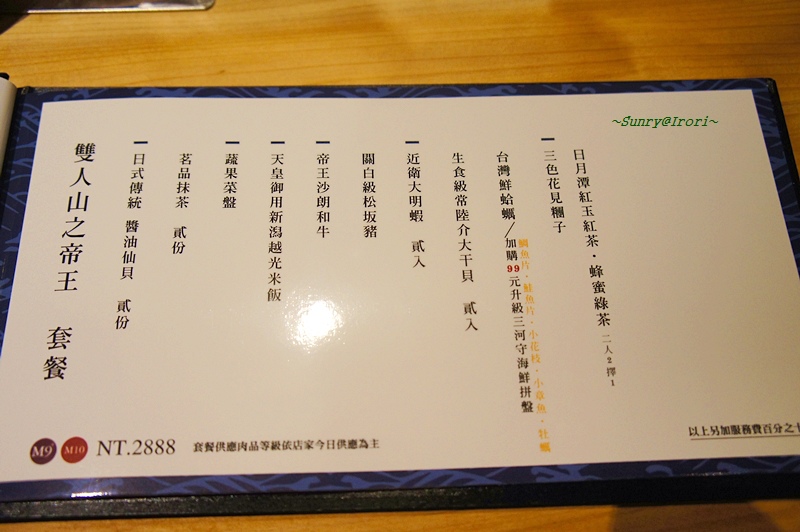 雙人山之帝王 套餐
日式傳統 醬油仙貝 貳份
茗品抹茶 貳份
蔬果菜盤
天皇御用新潟越光米飯
帝王沙朗和牛
關白級松坂豬
近衛大明蝦 貳入
生食級常陸介大干貝 貳入
台灣鮮蛤蠣/加購99元升級三河守海鮮拼盤
鯛魚片．鮭魚片．小花枝．小章魚．牡蠣
三色花見糰子
日月潭紅玉紅茶．蜂蜜綠茶 二人2擇1
M9 M10 NT.2888 套餐供應肉品等級依店家今日供應為主
以上另加服務費百分之十
~Sunry@Irori~